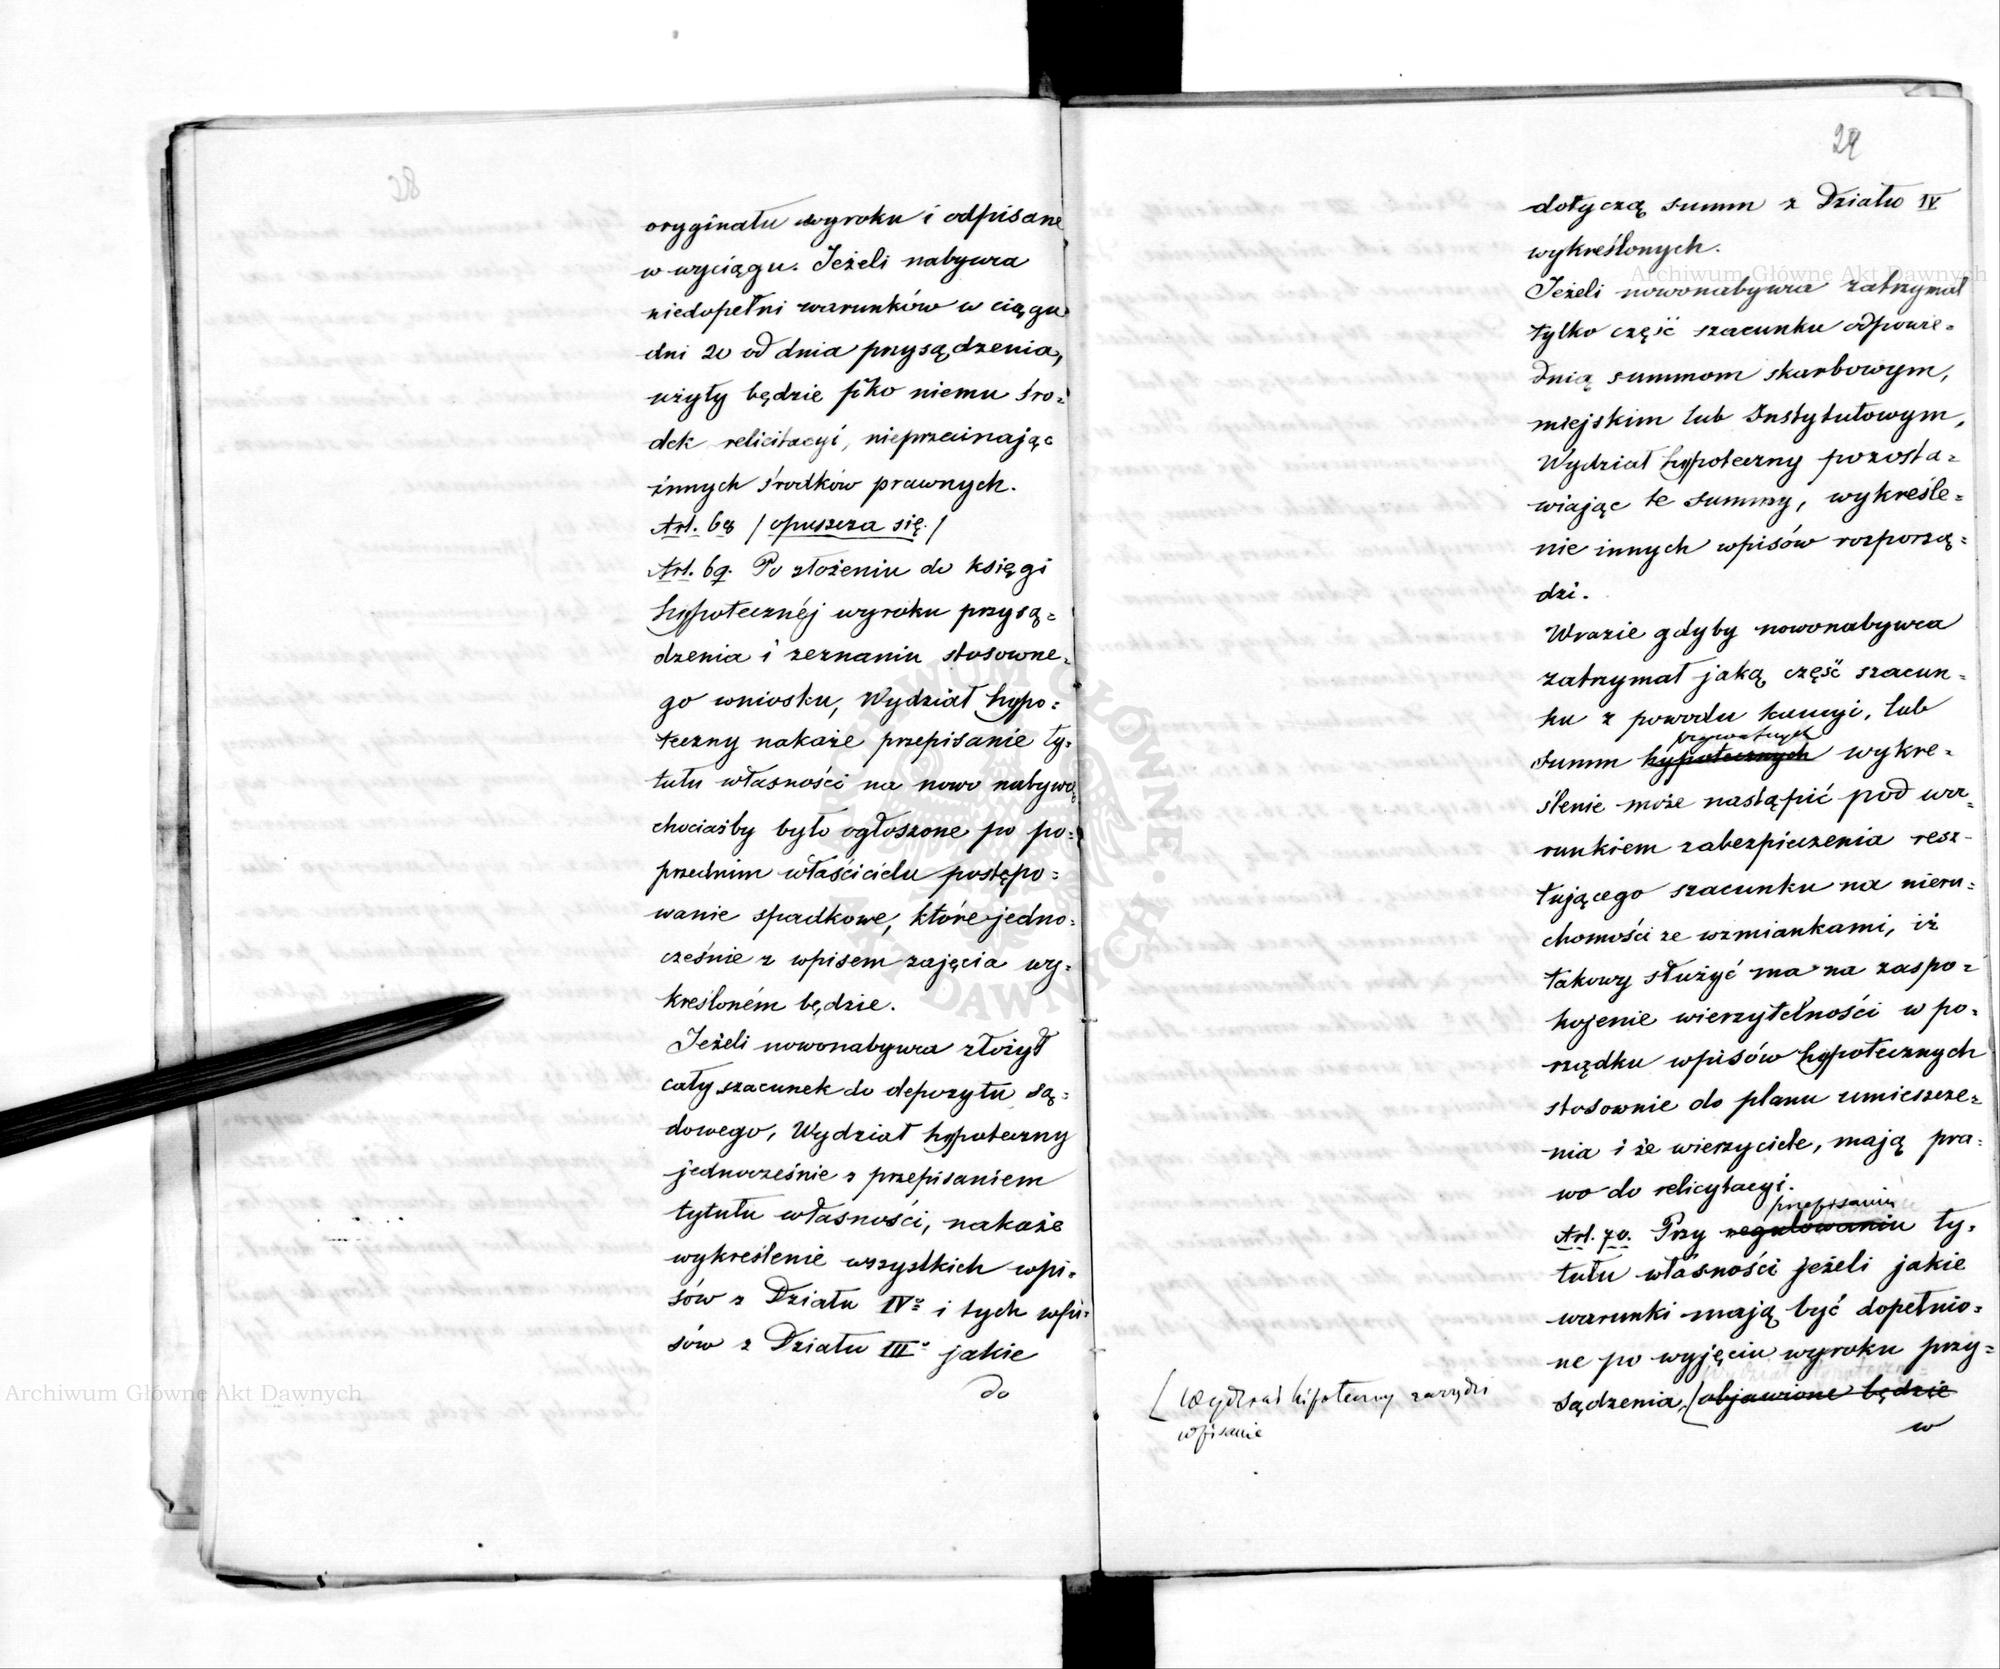 28
oryginału wyroku i odpisane
w wyciągu. Jeżeli nabywca
niedopełni warunków w ciągu
dni 20 od dnia przysądzenia,
użyty będzie pko niemu śro=
dek relicitacyi, nieprzecinając
innych środków prawnych.
Art. 68 / opuszcza się. /
Art. 69. Po złożeniu do księgi
hypotecznéj wyroku przysą=
dzenia i zeznaniu stosowne=
go wniosku, Wydział hypo=
teczny nakaże przepisanie ty=
tułu własności na nowo nabywcę
chociażby było ogłoszone po po=
przednim właścicielu postępo=
wanie spadkowe, które jedno=
cześnie z wpisem zajęcia wy=
kreśloném będzie.
Jeżeli nowonabywca złożył
cały szacunek do depozytu są=
dowego, Wydział hypoteczny
jednocześnie z przepisaniem
tytułu własności, nakaże
wykreślenie wszystkich wpi=
sów z Działu IVº i tych wpi=
sów z Działu IIIº jakie
do
29
dotyczą summ z Działu IV
wykreślonych.
Jeżeli nowonabywca zatrzymał
tylko część szacunku odpowie=
dnią summom skarbowym,
miejskim lub Instytutowym,
Wydział hypoteczny pozosta=
wiając te summy, wykreśle=
nie innych wpisów rozporzą=
dzi.
Wrazie gdyby nowonabywca
zatrzymał jaką część szacun=
ku z powodu kaucyi, lub
prywatnych
summ hypotecznych wykre=
ślenie może nastąpić pod wa=
runkiem zabezpieczenia resz-
tującego szacunku na nieru=
chomości ze wzmiankami, iż
takowy służyć ma na zaspo=
kojenie wierzytelności w po=
rządku wpisów hypotecznych
stosownie do planu umieszcze=
nia i że wierzyciele, mają pra=
wo do relicytacyi.
przepisaniu
Art. 70. Przy regulowaniu ty=
tułu własności jeżeli jakie
warunki mają być dopełnio=
ne po wyjęciu wyroku przy=
sądzenia, [objawione będzie
w
[ Wydział hipoteczny zarządzi
wpisanie
Archiwum Główne Akt Dawnych
Archiwum Główne Akt Dawnych
ARCHIWUM GŁÓWNE AKT DAWNYCH